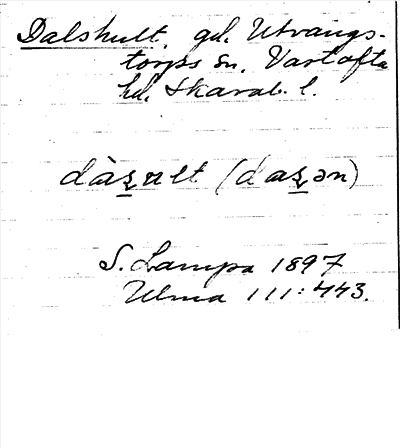 Dalshult, gd. Utvängs-
torps sn, Vartofta
hd. Skarab. l.
dàʂult (daʂən)
S. Lampa 1897
Ulma 111:443.